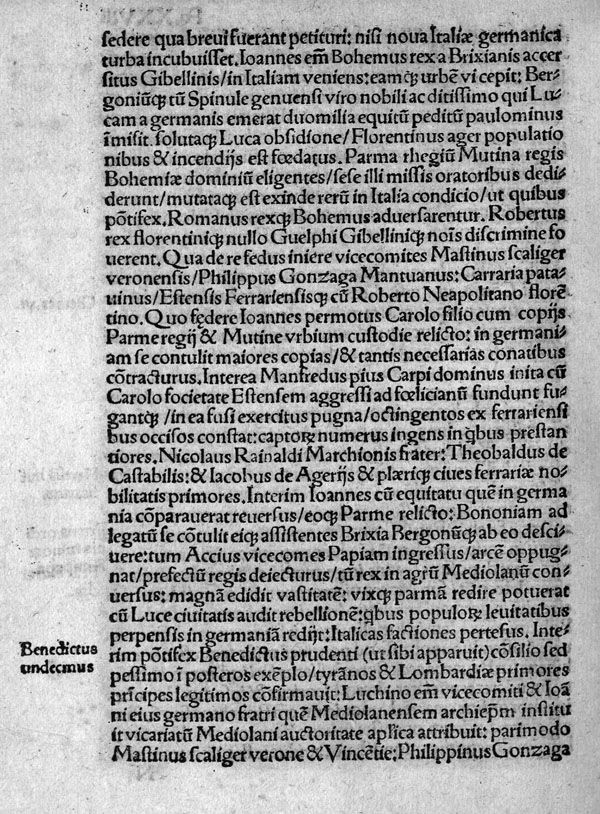 sedere qua breui fuerant petituri: nisi noua Italiæ germanica
turba incubuisset. Ioannes em̄ Bohemus rex a Brixianis accer
situs Gibellinis/in Italiam veniens: eamq; urbē vi cepit: Ber⸗
goniūq; tū Spinule genuensi viro nobili ac ditissimo qui Lu
cam a germanis emerat duomilia equitū peditū paulominus
īmisit. solutaq; Luca obsidione/Florentinus ager populatio
nibus & incendijs est fœdatus. Parma rhegiū Mutina regis
Bohemiæ dominiū eligentes/sese illi missis oratoribus dedi⸗
derunt/mutataq; est exinde rerū in Italia condicio/ut quibus
pōtifex. Romanus rexq; Bohemus aduersarentur. Robertus
rex florentiniq; nullo Guelphi Gibelliniq; nois discrimine fo
uerent. Qua de re fedus iniere vicecomites Mastinus scaliger
veronensis/Philippus Gonzaga Mantuanus: Carraria pata⸗
uinus/Estensis Ferrariensisq; cū Roberto Neapolitano florē
tino. Quo fędere Ioannes permotus Carolo filio cum copijs
Parme regij & Mutine vrbium custodie relicto: in germani⸗
am se contulit maiores copias/& tantis necessarias conatibus
cōtracturus. Interea Manfredus pius Carpi dominus inita cū
Carolo societate Estensem aggressi ad fœlicianū fundunt fu⸗
gantq; /in ea fusi exercitus pugna/octingentos ex ferrariensi
bus occisos constat: captoꝝ numerus ingens in qbus prestan
tiores. Nicolaus Rainaldi Marchionis frater: Theobaldus de
Castabilis: & Iacobus de Agerijs & plæriq; ciues ferrariæ no⸗
bilitatis primores. Interim Ioannes cū equitatu quē in germa
nia cōparauerat reuersus/eoq; Parme relicto: Bononiam ad
legatū se cōtulit eiq; assistentes Brixia Bergonūq; ab eo desci⸗
uere: tum Accius vicecomes Papiam ingressus/arcē oppug⸗
nat/prefectū regis deiecturus/tū rex in agrū Mediolanū con⸗
uersus: magnā edidit vastitatē: vixq; parmā redire potuerat
cū Luce ciuitatis audit rebellionē: qbus populoꝝ leuitatibus
perpensis in germaniā redijt: Italicas factiones pertesus. Inte⸗
Benedictus
undecmus
rim pōtifex Benedictus prudenti (ut sibi apparuit) cōsilio sed
pessimo ī posteros exēplo/tyrānos & Lombardiæ primores
prīcipes legitimos cōfirmauit: Luchino em̄ vicecomiti & Ioā
ni eius germano fratri quē Mediolanensem archiepm̄ institu
it vicariatū Mediolani auctoritate aplica attribuit: parimodo
Mastinus scaliger verone & Vincētie: Philippinus Gonzaga